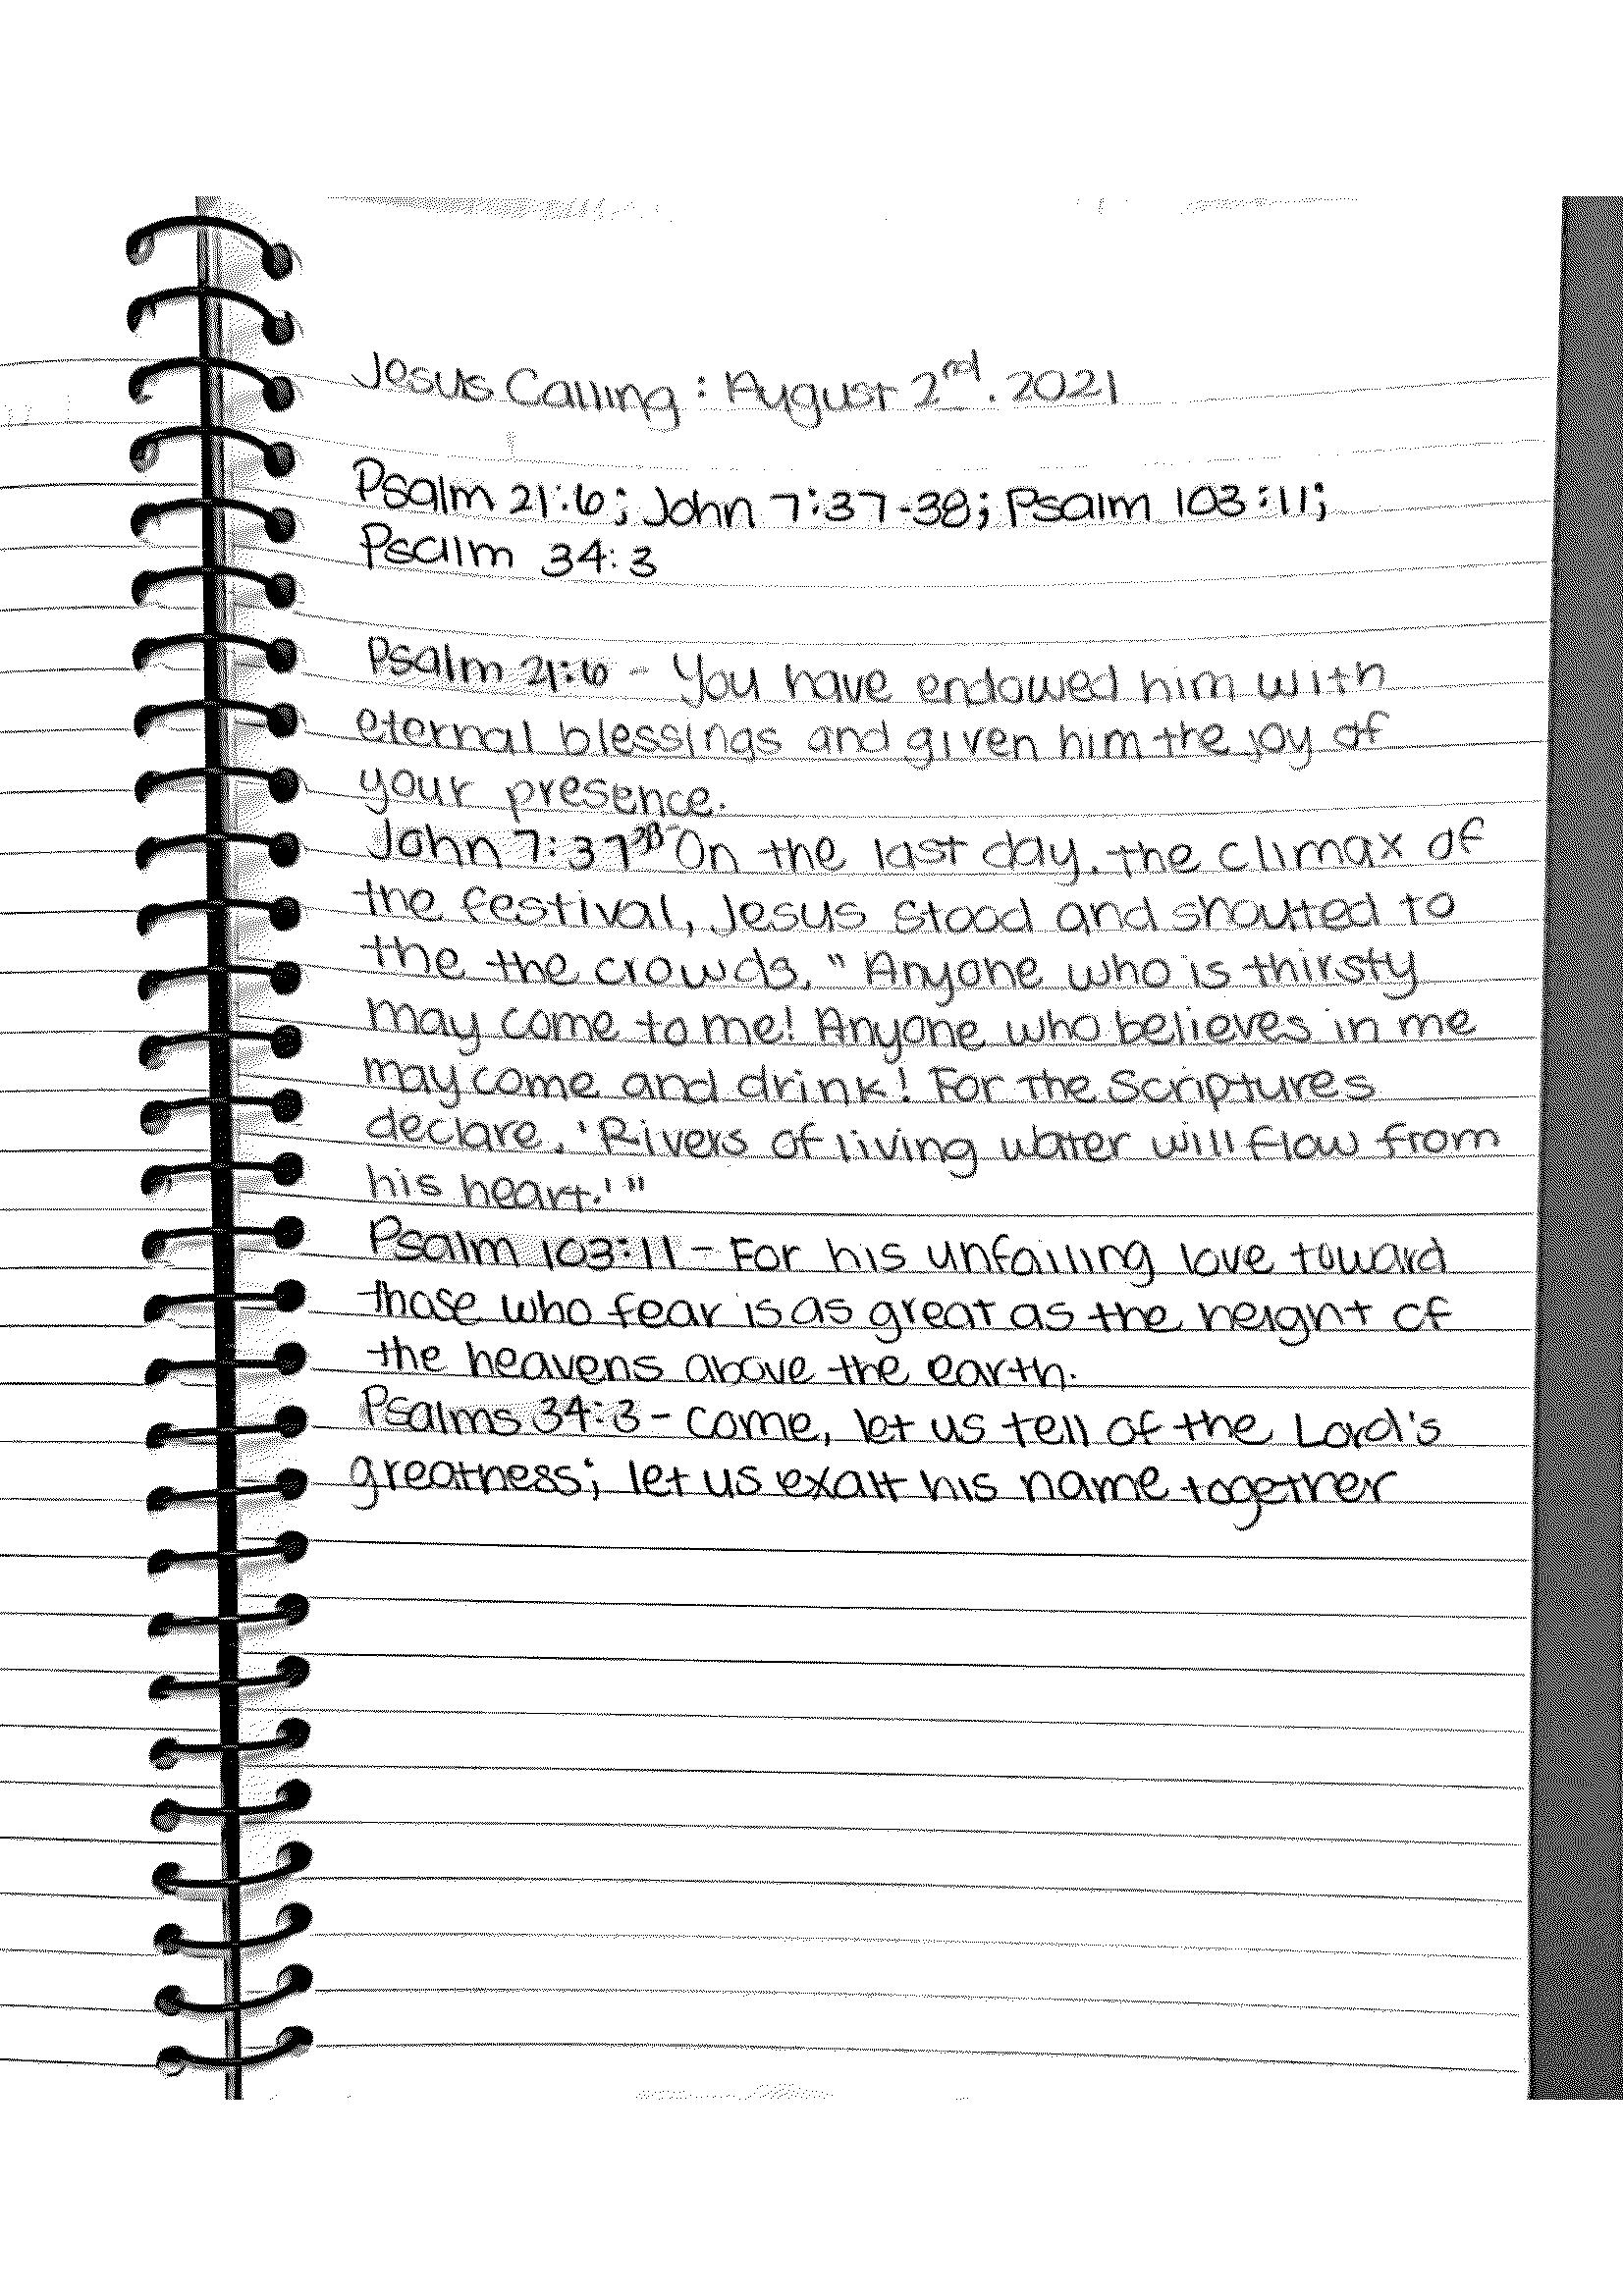 Jesus Calling : August 2nd, 2021
Psalm 21:6; John 7:37-38; Psalm 103:11;
Psalm 34:3
Psalm 21:6 - You have endowed him with
eternal blessings and given him the joy of
your presence.
John 7:37-38- On the last day, the climax of
the festival, Jesus stood and shouted to
the the crowds, "Anyone who is thirsty
may come to me! Anyone who believes in me
may come and drink! For the Scriptures
declare, 'Rivers of living water will flow from
his heart.'"
Psalm 103:11 - For his unfailing love toward
those who fear is as great as the height of
the heavens above the earth.
Psalms 34:3 - Come, let us tell of the Lord's
greatness; let us exalt his name together